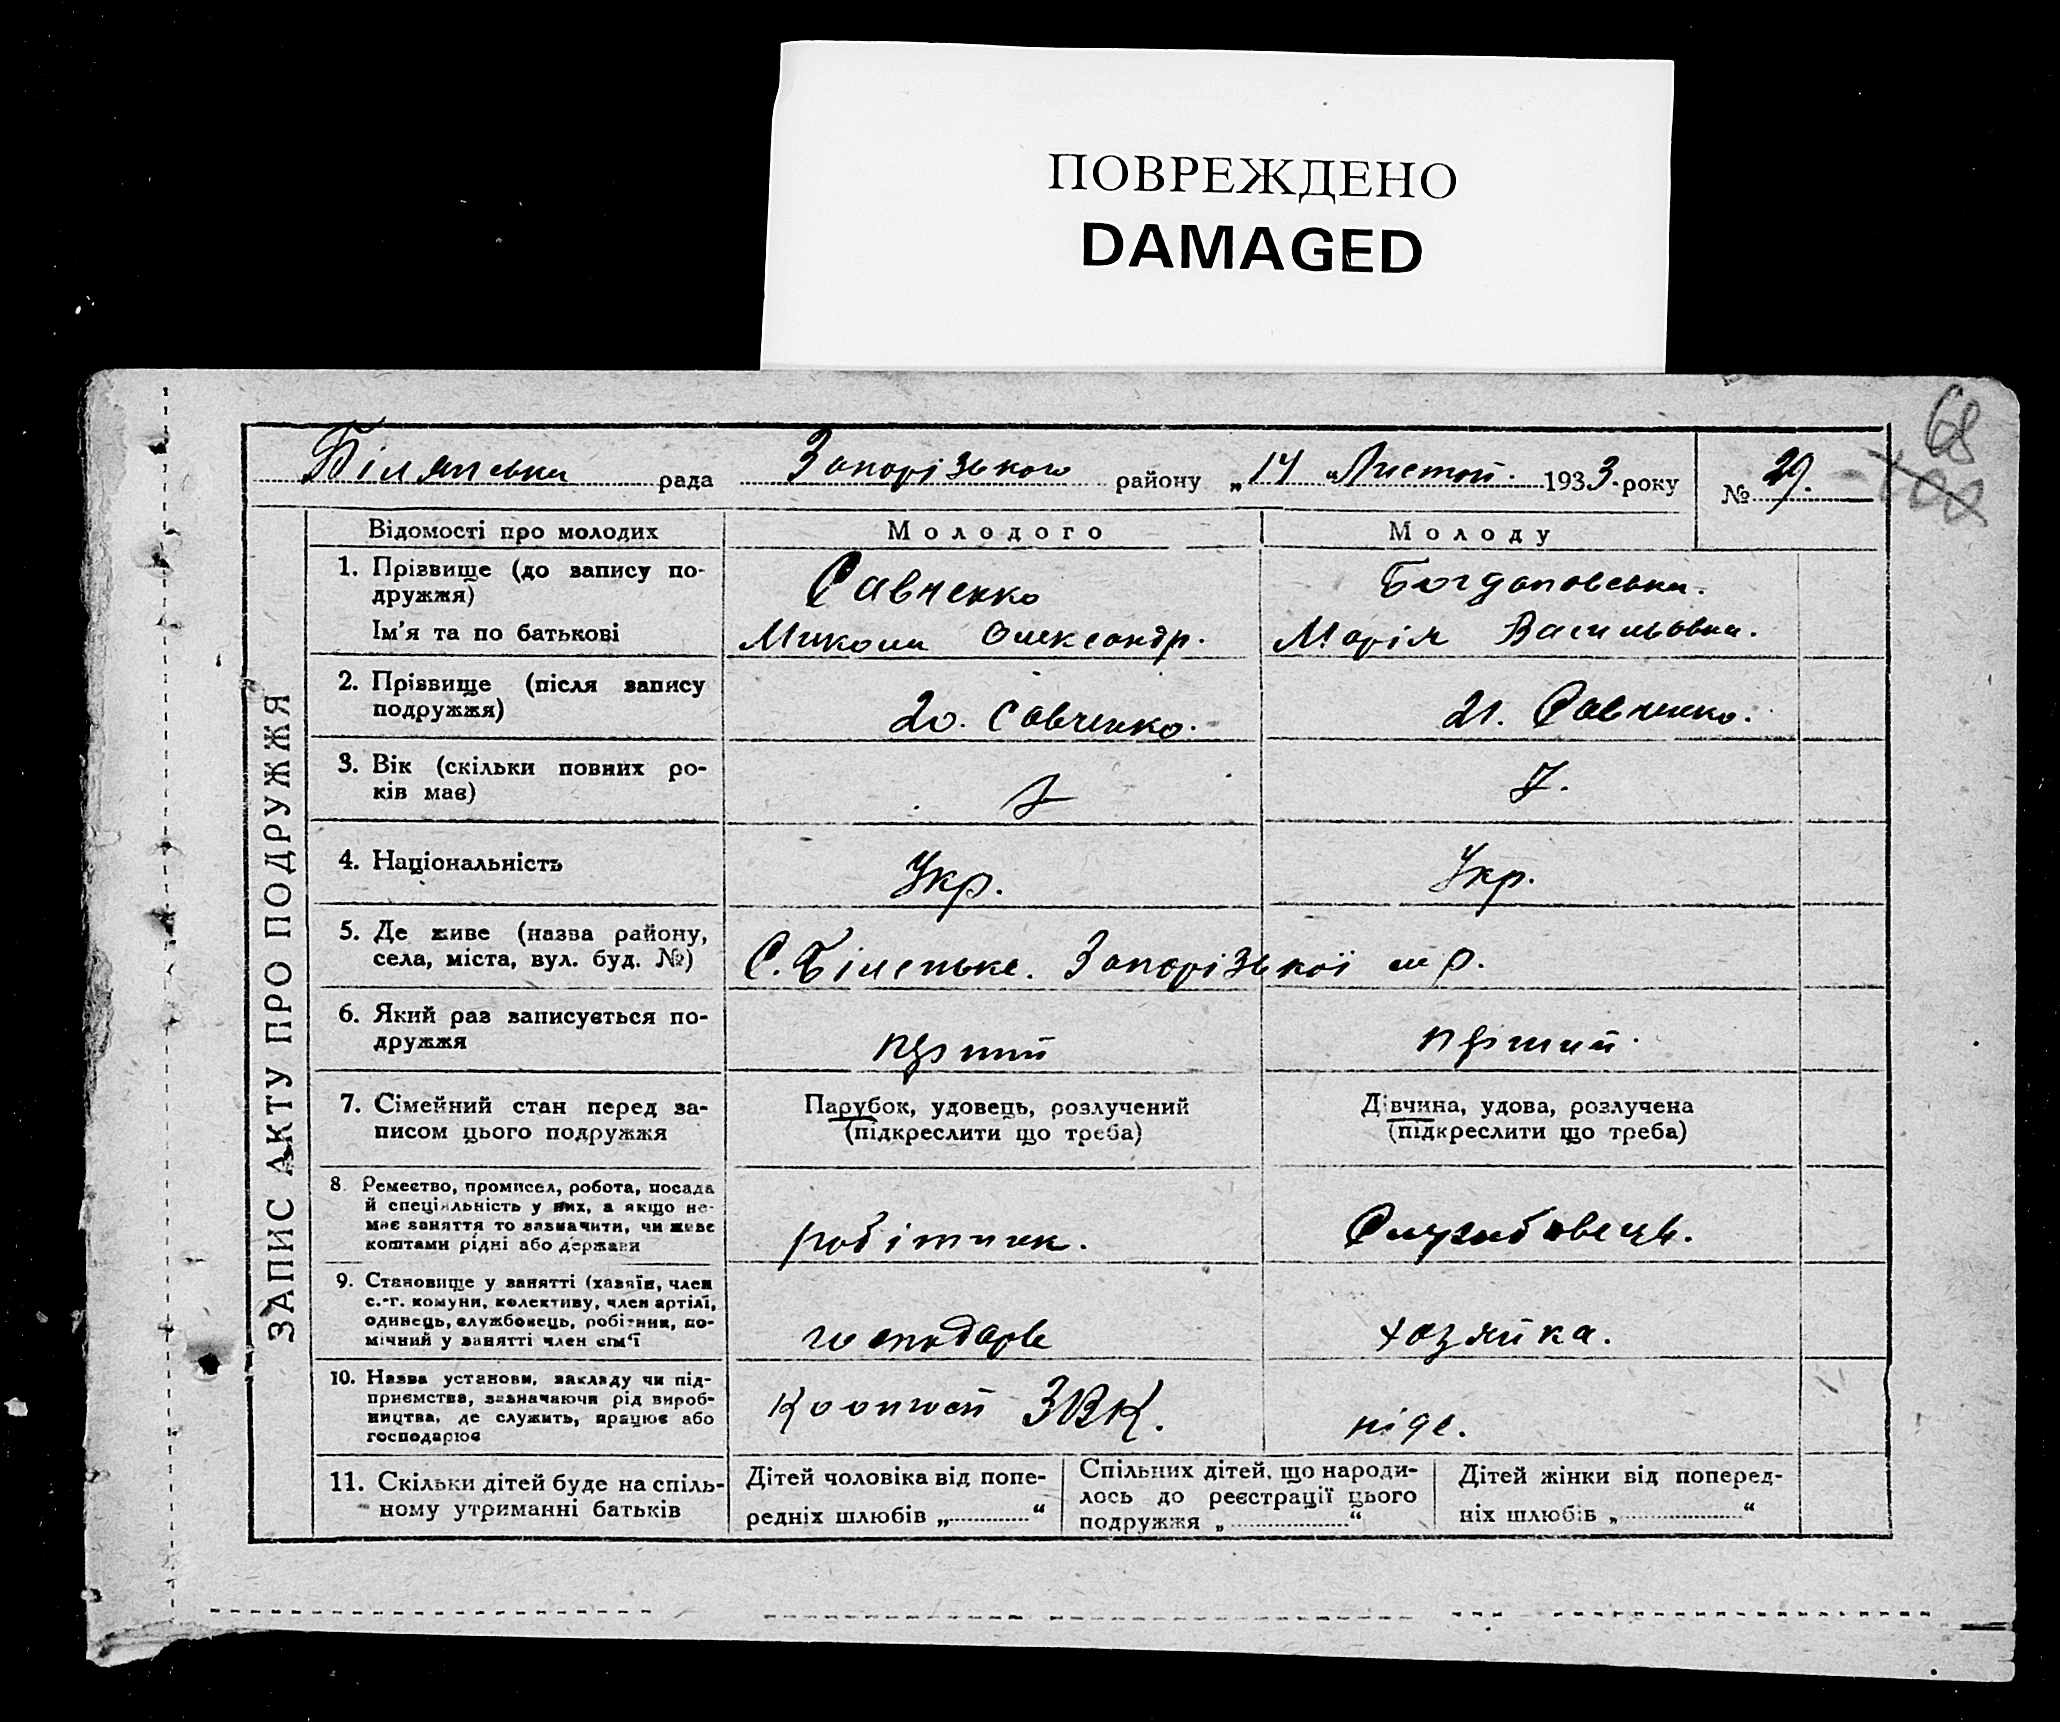 ПОВРЕЖДЕНО
DAMAGED
68
Білянська рада Запорізького району „14 „Листоп. 1933. року № 29.
100
ЗАПИС АКТУ ПРО ПОДРУЖЖЯ
Відомості про молодих Молодого Молоду
1. Прізвище (до запису по-
дружжя)
Савченко Богдановська.
Ім'я та по батькові Микола Олександр. Марія Васильовна.
2. Прізвище (після запису
подружжя)
20. Савченко. 21. Савченко.
3. Вік (скільки повних ро-
ків має)
4. Національність Укр. Укр.
5. Де живе (назва району,
села, міста, вул. буд. №)
С. Біленьке. Запорізької м р.
6. Який раз записується по-
дружжя
перший перший.
7. Сімейний стан перед за-
писом цього подружжя
Парубок, удовець, розлучений
(підкреслити що треба)
Дівчина, удова, розлучена
(підкреслити що треба)
8. Ремество, промисел, робота, посада
й спеціяльність у них, а якщо не-
має заняття то зазначити, чи живе
коштами рідні або держави
робітник. Службовець.
9. Становище у занятті (хазяїн, член
с.-г. комуни, колективу, член артілі,
одинець, службовець, робітник, по-
мічний у занятті член сім'ї
господарь хозяйка.
10. Назва установи, закладу чи під-
приємства, зазначаючи рід вироб-
ництва, де служить, працює або
господарює
ЗВК. ніде.
11. Скільки дітей буде на спіль-
ному утриманні батьків
Дітей чоловіка від попе-
редніх шлюбів „ “
Спільних дітей, що народи-
лось до реєстрації цього
подружжя „ “
Дітей жінки від поперед-
ніх шлюбів „ “